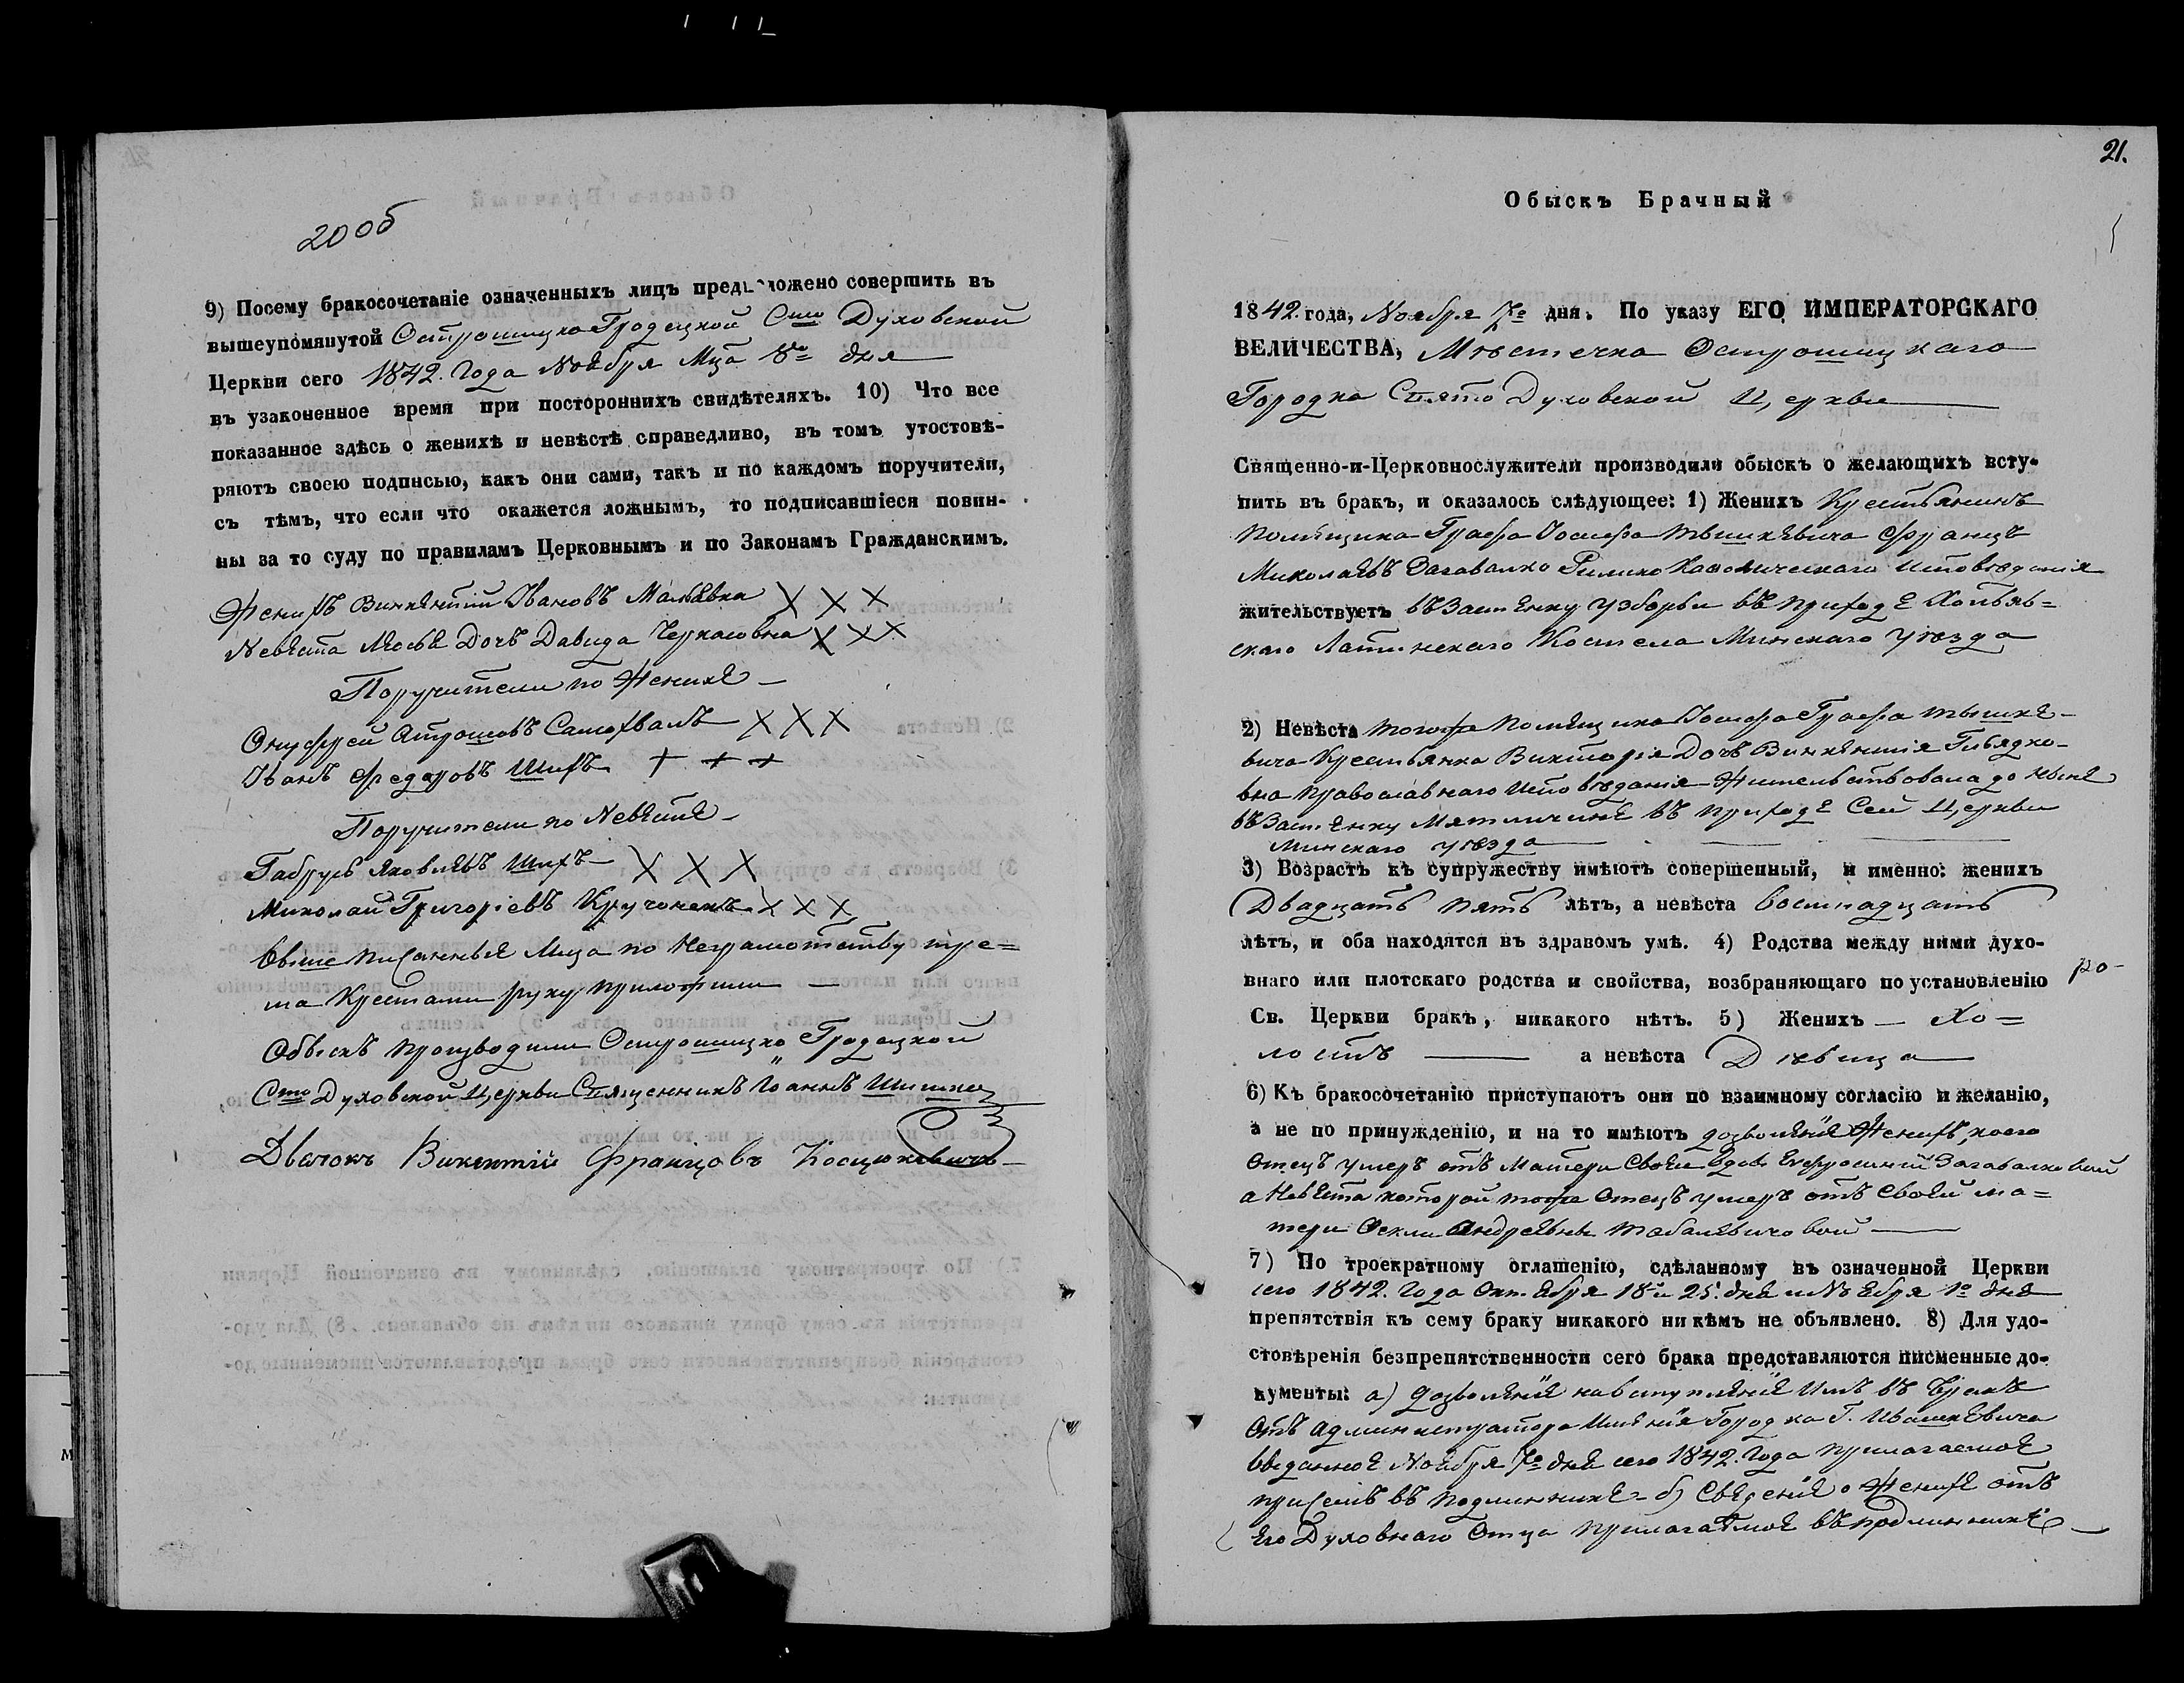 20 об
9) Посему бракосочетаніе означенныхъ лицъ предположено совершить въ
вышеупомянутой Острошицко Гродецкой Сто Духовской
Церкви сего 1842. Года Ноебря Мца 8го дня
въ узаконенное время при постороннихъ свидѣтеляхъ. 10) Что все
показанное здѣсь о женихѣ и невѣстѣ справедливо, въ томъ утостовѣ-
ряютъ своею подписью, какъ они сами, такъ и по каждомъ поручители,
съ тѣмъ, что если что окажется ложнымъ, то подписавшіеся повин-
ны за то суду по правиламъ Церковнымъ и по Законамъ Гражданскимъ.
Женихъ Винкентій Ивановъ Малявка X X X
Невеста Дочъ Давида X X X
Поручители по Женихе
Онуфрей Самохвалъ X X X
Иванъ Федоровъ Шихъ + + +
Поручители по Невесте
Габрусь Яковлевъ Шихъ X X X
Миколай Григоріевъ X X X
Више писанные Лица по Неграмотству тре=
ма Крестами руку приложили
Обыскъ производили Острошицко Гродецкой
Сто Духовской Церкви Священникъ Іоаннъ Шишко
Дьячокъ Викентій Францовъ Косцюкевичъ
21.
Обыскъ Брачный
1842. года, Ноября 7го дня. По указу ЕГО ИМПЕРАТОРСКАГО
ВЕЛИЧЕСТВА, Мѣстечка Острошицкаго
Городка Свято Духовской Церкви
Священно-и-Церковнослужители производили обыскъ о желающихъ всту-
пить въ бракъ, и оказалось слѣдующее: 1) Женихъ Крестьянинъ
помещика Графа Іосифа Тышкевича Францъ
Миколаевъ Загавалко Римско Каѳолическаго исповѣданія
жительствуетъ въ Застенку Узборьи въ приходе
скаго Латинскаго Костела Минскаго уѣзда
2) Невѣста того же помещика Іосифа Графа Тышке-
вича Крестьянка Викторія Дочъ Винкентія
вна православнаго исповѣданія Жительствовала до ныне
въ Застенку въ приходе Сей Церкви
Минскаго уѣзда
3) Возрастъ къ супружеству имѣютъ совершенный, и именно: женихъ
Двадцать пять лѣтъ, а невѣста восемнадцать
лѣтъ, и оба находятся въ здравомъ умѣ. 4) Родства между ними духо-
внаго или плотскаго родства и свойства, возбраняющаго по установленію
Св. Церкви бракъ, никакого нѣтъ. 5) Женихъ Хо=
лостъ а невѣста Дѣвица
6) Къ бракосочетанію приступаютъ они по взаимному согласію и желанію,
а не по принужденію, и на то имѣютъ дозволеніе Женихъ, коего
отецъ умеръ отъ Матери Своей вдовы Загавалковой
а Невеста которой тоже отецъ умеръ отъ своей ма=
тери Андреевны
7) По троекратному оглашенію, сдѣланному въ означенной Церкви
сего 1842. года Октебря 18 и 25. дня и Ноебря 1го дня
препятствія къ сему браку никакого ни кѣмъ не объявлено. 8) Для удо-
стовѣренія безпрепятственности сего брака представляются письменные до-
кументы: а) дозволеніе на вступленіе имъ въ бракъ
отъ администратора именія Городка Г. Ивашкевича
выданное Ноября 7го дня сего 1842. года прилагаемое
при семъ въ подлиннике б) Сведеніе о Женихе отъ
его Духовнаго Отца прилагаемое въ подлиннике